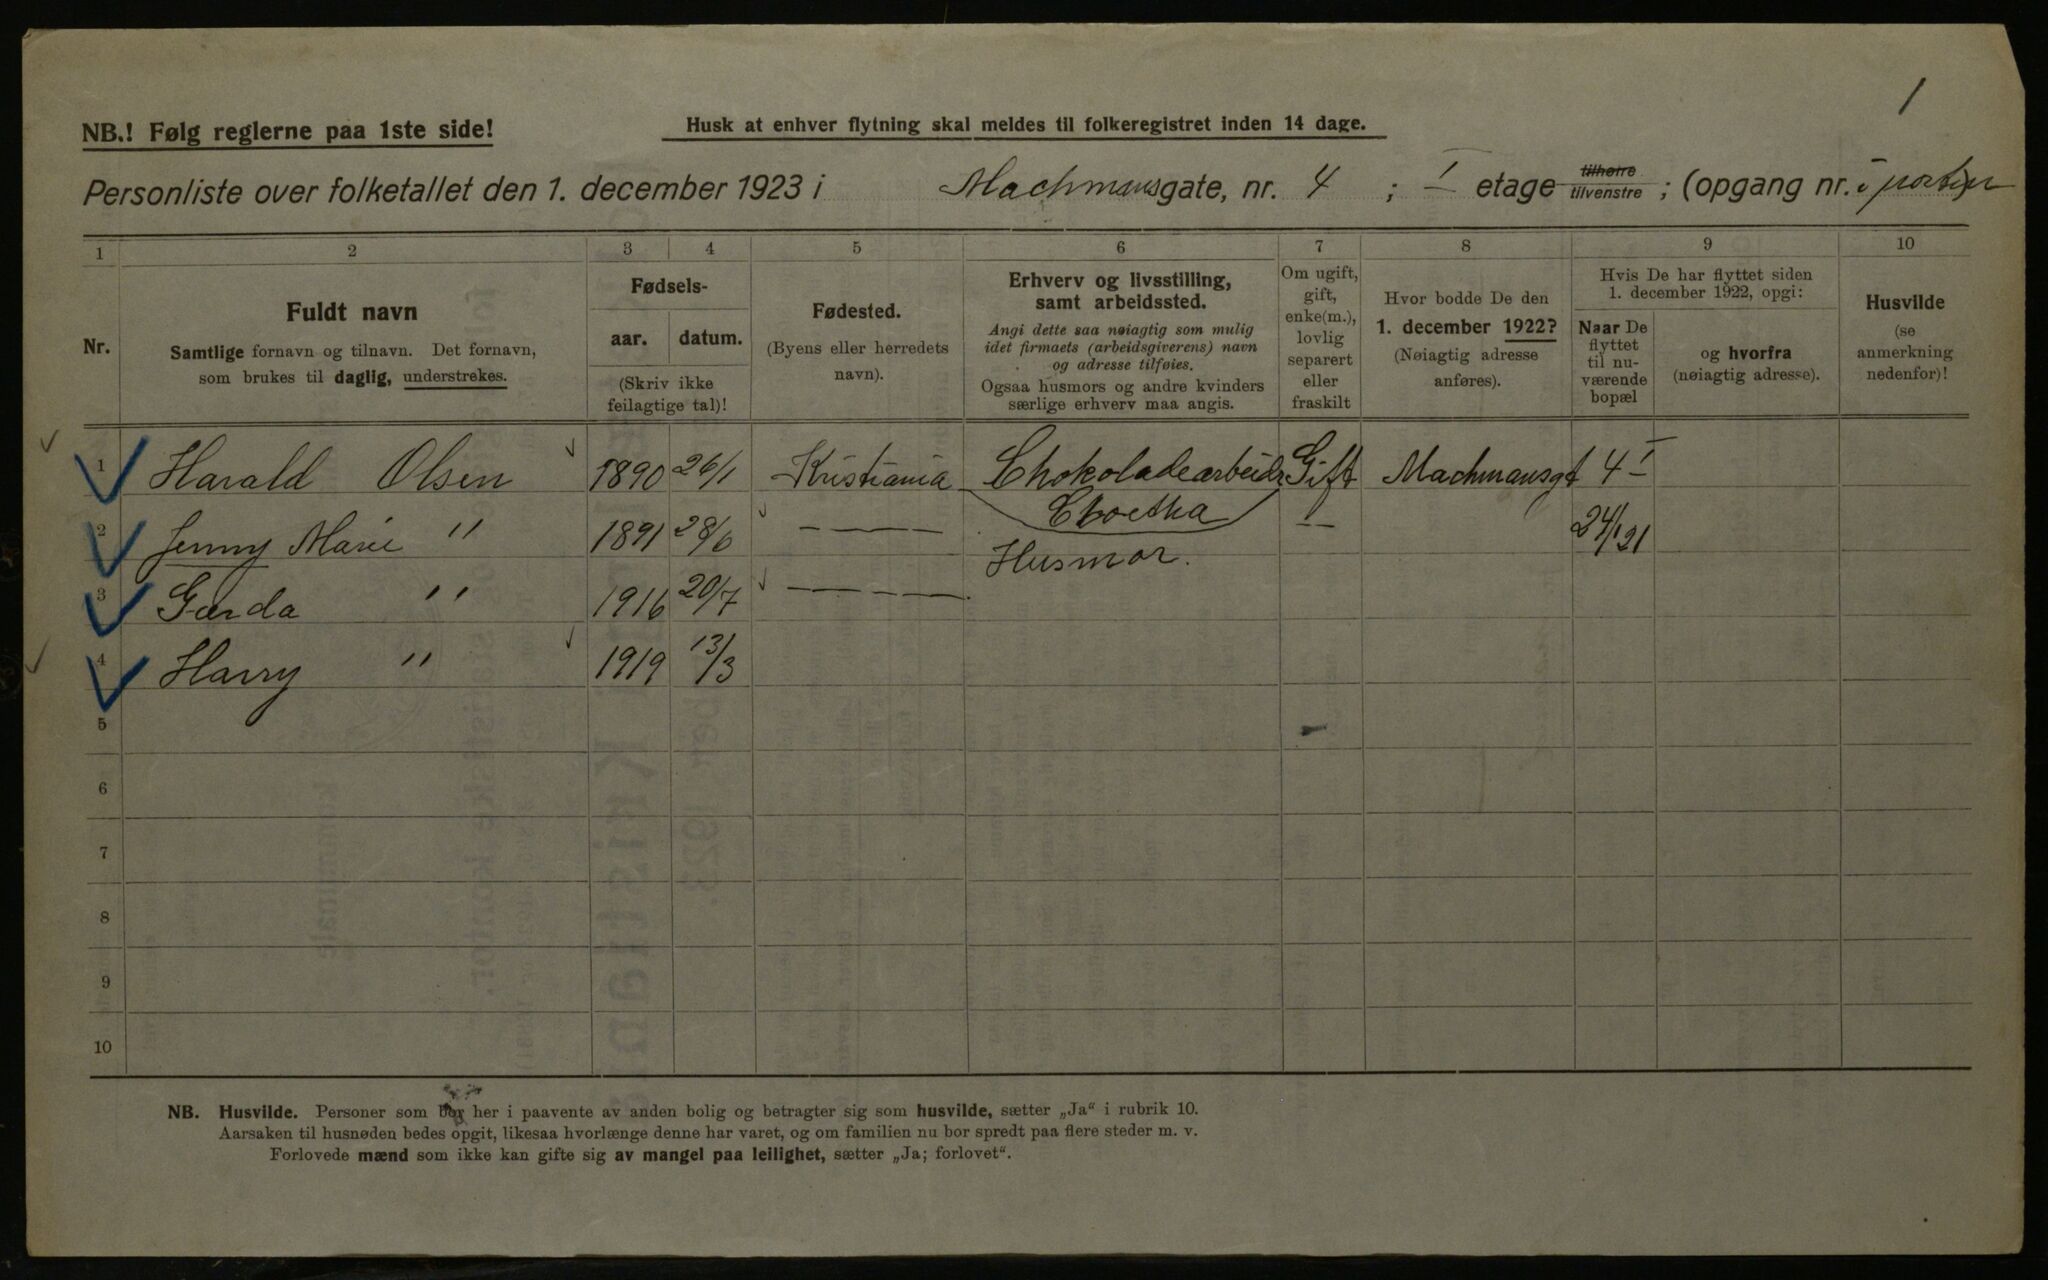 1
NB.! Følg reglerne paa 1ste side!
Husk at enhver flytning skal meldes til folkeregistret inden 14 dage.
Personliste over folketallet den 1. december 1923 i Machmansgate, nr. 4 ; I etage tilhøire tilvenstre ; (opgang nr. i
1 2 3 4 5 6 7 8 9 10
Nr.
Fuldt navn
Samtlige fornavn og tilnavn. Det fornavn,
som brukes til daglig, understrekes.
Fødsels-
aar. datum.
(Skriv ikke
feilagtige tal)!
Fødested.
(Byens eller herredets
navn).
Erhverv og livsstilling,
samt arbeidssted.
Angi dette saa nøiagtig som mulig
idet firmaets (arbeidsgiverens) navn
og adresse tilføies.
Ogsaa husmors og andre kvinders
særlige erhverv maa angis.
Om ugift,
gift,
enke(m.),
lovlig
separert
eller
fraskilt
Hvor bodde De den
1. december 1922?
(Nøiagtig adresse
anføres).
Hvis De har flyttet siden
1. december 1922, opgi:
Naar De
flyttet
til nu-
værende
bopæl
og hvorfra
(nøiagtig adresse).
Husvilde
(se
anmerkning
nedenfor)!
1 Harald Olsen 1890 26/1 Kristiania Chokoladearbeidr Gift Machmansgt 4 I
2 Jenny Marie " 1891 28/6 — — — — 24/1 21
Husmor.
3 Gerda " 1916 20/7 — — — —
4 Harry " 1919 13/3
5
6
7
8
9
10
NB. Husvilde. Personer som bor her i paavente av anden bolig og betragter sig som husvilde, sætter „Ja“ i rubrik 10.
Aarsaken til husnøden bedes opgit, likesaa hvorlænge denne har varet, og om familien nu bor spredt paa flere steder m. v.
Forlovede mænd som ikke kan gifte sig av mangel paa leilighet, sætter „Ja; forlovet“.